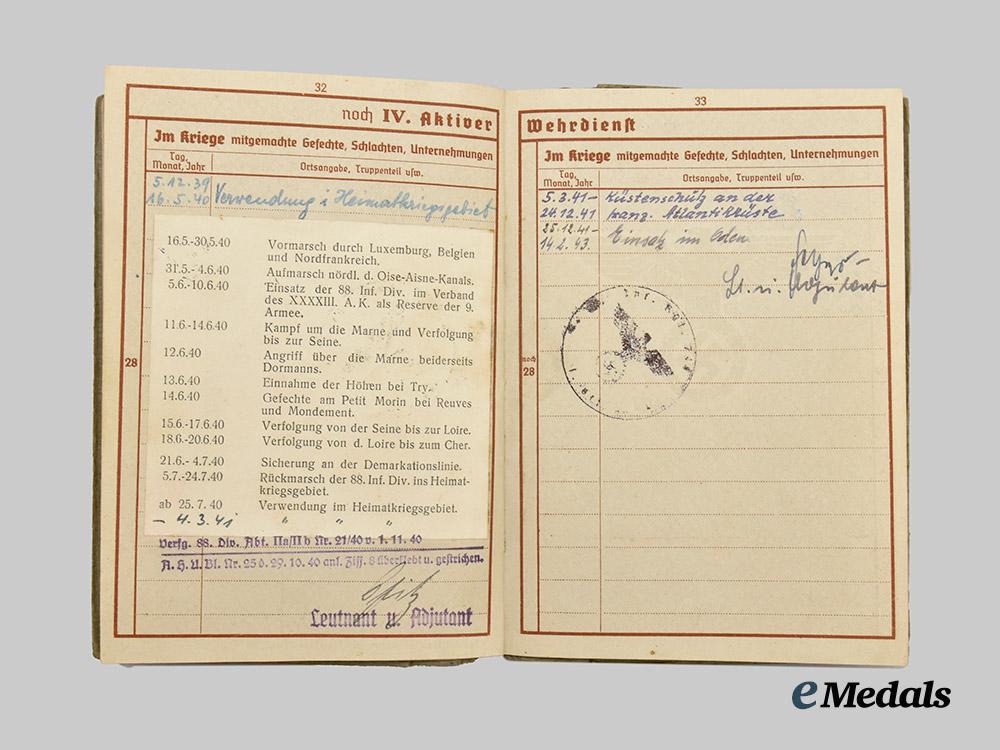 32
noch IV. Aktiver
Im Kriege mitgemachte Gefechte, Schlachten, Unternehmungen
Tag,
Monat, Jahr
Ortsangabe, Truppenteil usw.
5.12.39
16.5.40 Verwendung i Heimatkriegsgebiet
28
16.5.-30.5.40 Vormarsch durch Luxemburg, Belgien
und Nordfrankreich.
31.5.-4.6.40 Aufmarsch nördl. d. Oise-Aisne-Kanals.
5.6.-10.6.40 Einsatz der 88. Inf. Div. im Verband
des XXXXIII. A. K. als Reserve der 9.
Armee.
11.6.-14.6.40 Kampf um die Marne und Verfolgung
bis zur Seine.
12.6.40 Angriff über die Marne beiderseits
Dormanns.
13.6.40 Einnahme der Höhen bei Try.
14.6.40 Gefechte am Petit Morin bei Reuves
und Mondement.
15.6.-17.6.40 Verfolgung von der Seine bis zur Loire.
18.6.-20.6.40 Verfolgung von d. Loire bis zum Cher.
21.6.- 4.7.40 Sicherung an der Demarkationslinie.
5.7.-24.7.40 Rückmarsch der 88. Inf. Div. ins Heimat-
kriegsgebiet.
ab 25.7.40 Verwendung im Heimatkriegsgebiet.
- 4.3.41 " " "
Verfg. 88. Div. Abt. IIa/II b Nr. 21/40 v. 1.11.40
A.H.U.Bl. Nr. 25 d. 29.10.40 anl. Ziff. 8 überklebt u. gestrichen.
Leutnant u. Adjutant
33
Wehrdienst
Im Kriege mitgemachte Gefechte, Schlachten, Unternehmungen
Tag,
Monat, Jahr
Ortsangabe, Truppenteil usw.
5.3.41- Küstenschutz an der
24.12.41 franz. Atlantikküste
25.12.41-
14.2.43. Einsatz im Osten
Lt. u. Adjutant
noch
28
Inf. Rgt.
eMedals